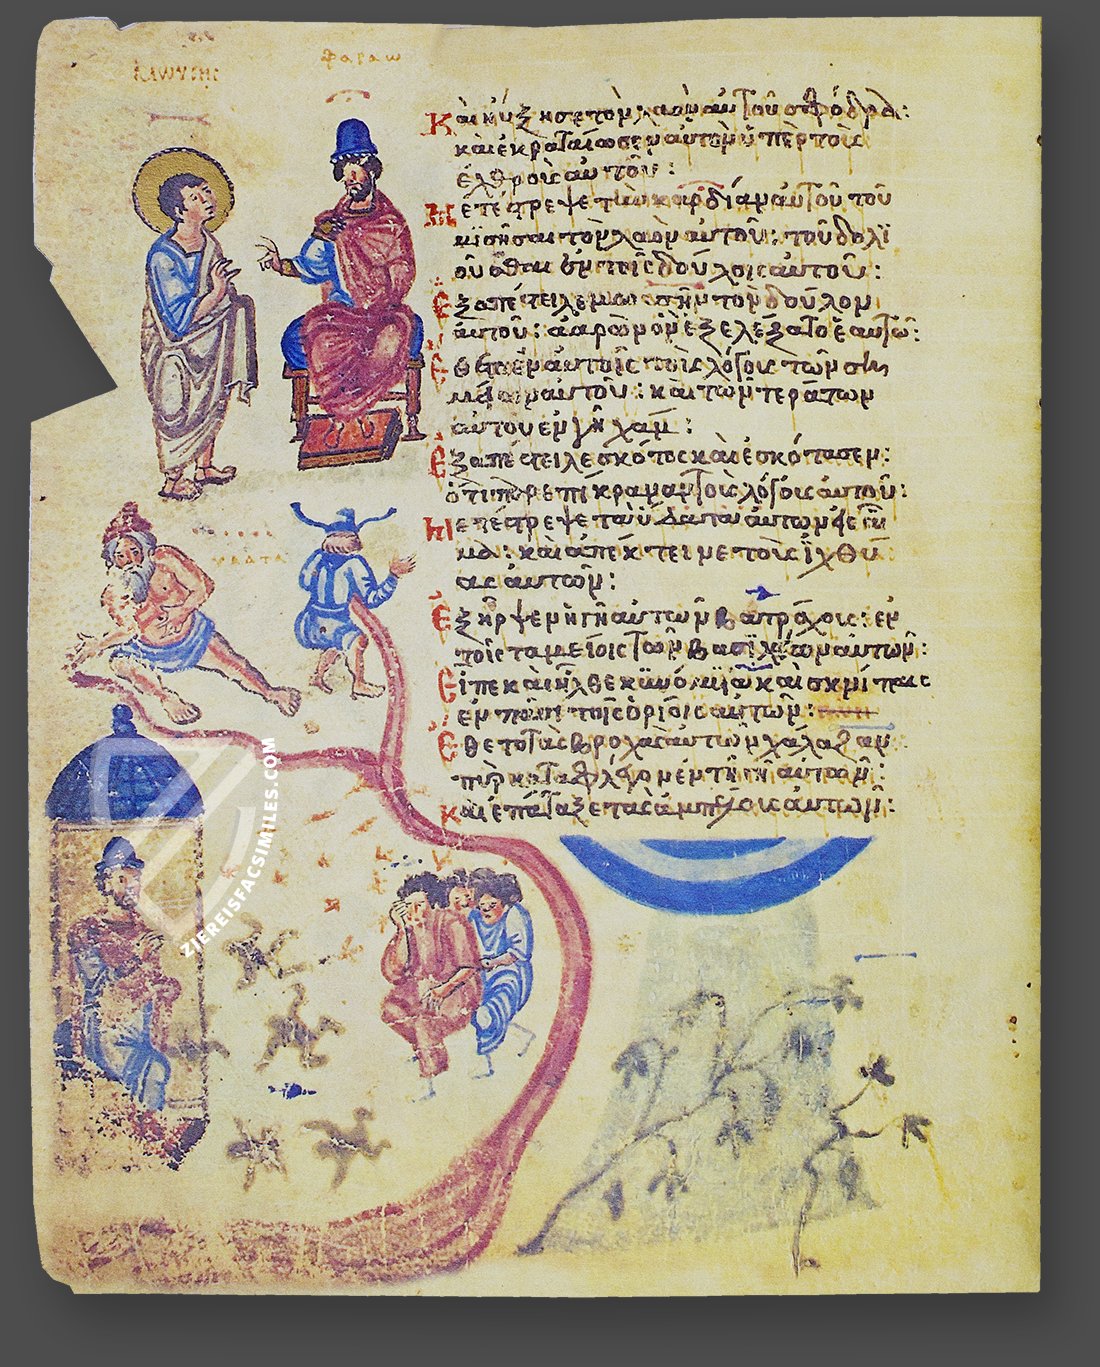 φαραω
Καὶ ηὔξησε τὸν λαὸν αὐτοῦ σφόδρα:
καὶ ἐκραταίωσεν αὐτὸν ὑπὲρ τοὺς
ἐχθροὺς αὐτοῦ:
Μετέστρεψε τὴν καρδίαν αὐτοῦ τοῦ
μισῆσαι τὸν λαὸν αὐτοῦ: τοῦ δολι
οῦσθαι ἐν τοῖς δούλοις αὐτοῦ:
Ἐξαπέστειλε μωσῆν τὸν δοῦλον
αὐτοῦ: ἀαρὼν ὃν ἐξελέξατο ἑαυτῷ:
Ἔθετο ἐν αὐτοῖς τοὺς λόγους τῶν ση
μείων αὐτοῦ: καὶ τῶν τεράτων
αὐτου ἐν γῆ χάμ:
Ἐξαπέστειλε σκότος καὶ ἐσκότασεν:
ὅτι παρεπίκραναν τοὺς λόγους αὐτοῦ:
Μετέστρεψε τὰ ὕδατα αὐτῶν εἰς αἷ
μα: καὶ ἀπέκτεινε τοὺς ἰχθύ
ας αὐτῶν:
υδατα
Ἐξῆρψεν ἡ γῆ αὐτῶν βατράχοις: ἐν
τοῖς ταμείοις τῶν βασιλέων αὐτῶν:
Εἶπε καὶ ἦλθε κυνόμυια καὶ σκνίπες
ἐν πᾶσι τοῖς ὁρίοις αὐτῶν:
Ἔθετο τὰς βροχὰς αὐτῶν χάλαζαν
πῦρ καταφλέγον ἐν τῇ γῇ αὐτῶν:
Καὶ ἐπάταξε τὰς ἀμπέλους αὐτῶν:
ZIEREISFACSIMILES.COM